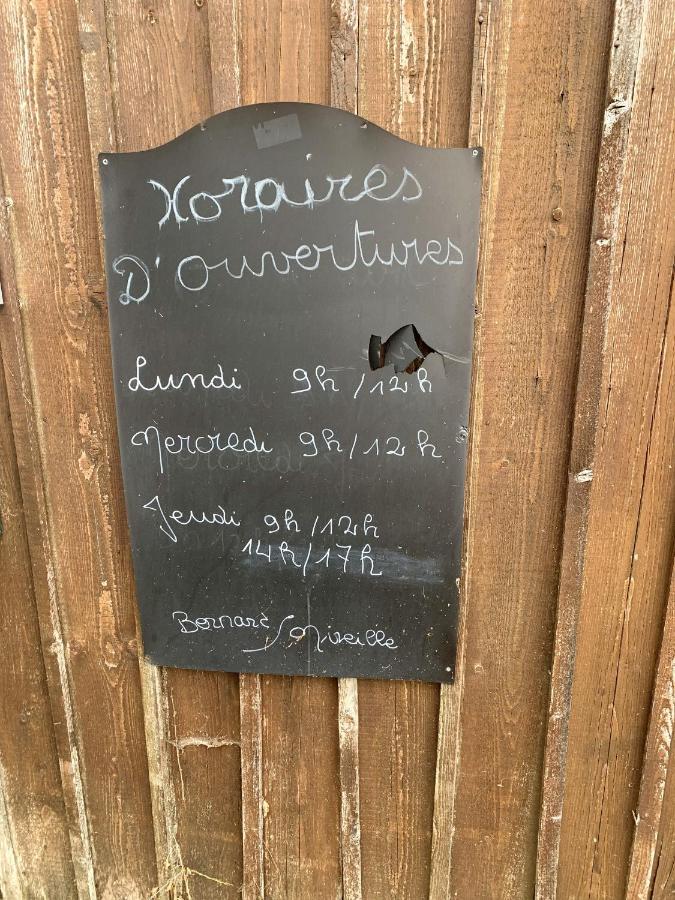 Horaires
D'ouvertures
Lundi 9h/12h
Mercredi 9h/12h
Jeudi 9h/12h
14h/17h
Bernard/Mireille